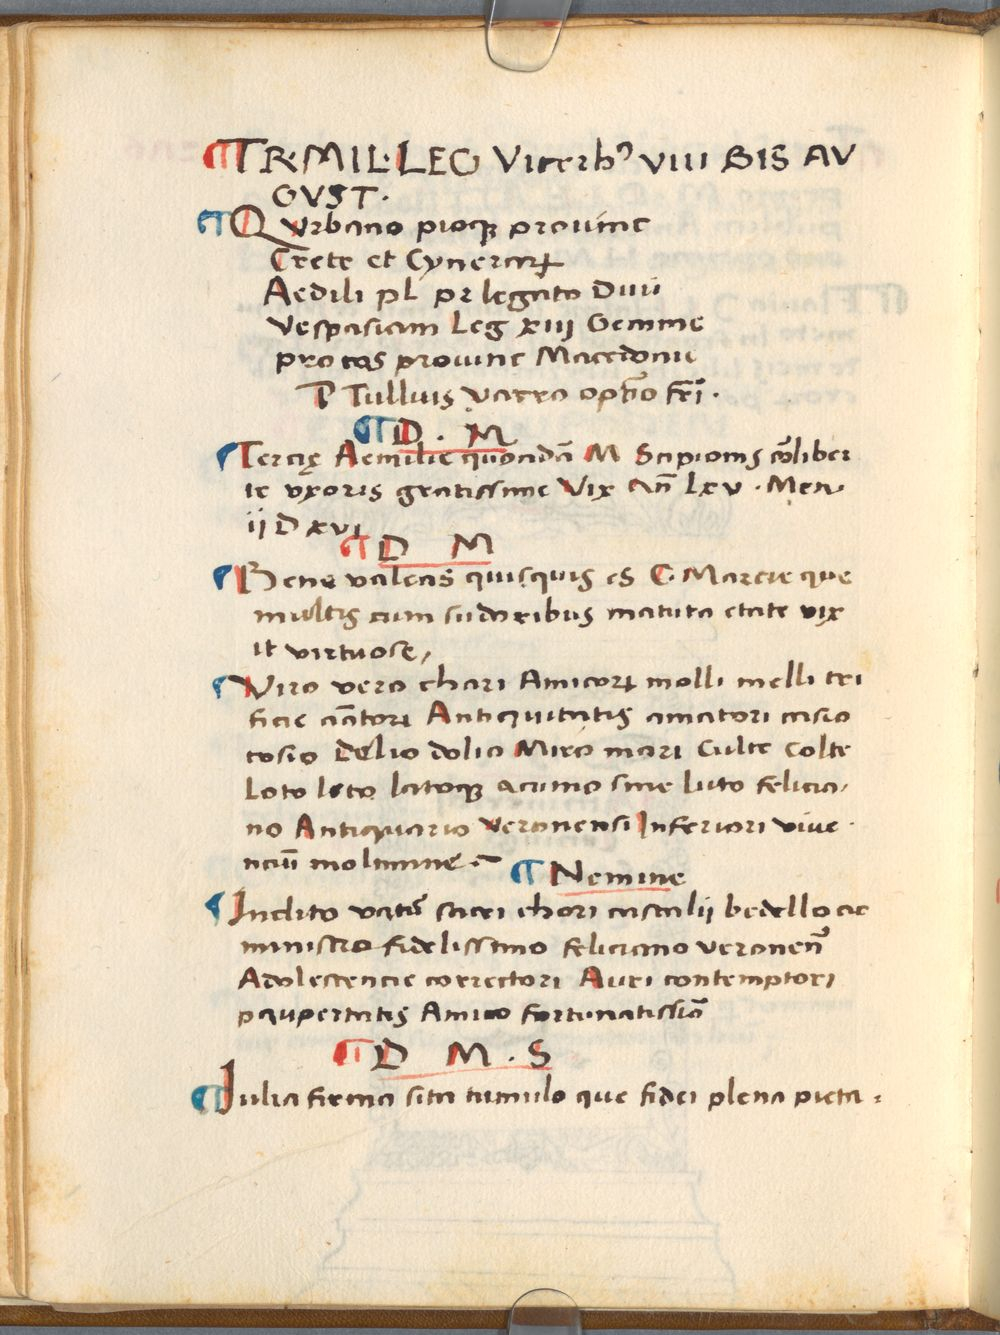 ¶TR·MIL·LEG Viterbꝰ VIII BIS AV
GVST·
¶Q Vrbano pioqꝫ prouinc
Crete et Cynerarꝝ
Aedili pL pr legato Diui
Vespasiani Leg xiij Gemine
pro cos prouinc Macedonie
P Tullius Varro optīo frī·
¶D · M
¶Tercię Aemilie quondā M Scipionis cōliber
te vxoris gratissime Vix An̄ Lxv · Men
ii D xvi
¶D M
¶Bene valeas quisquis es C·Marcie que
multis cum sudoribus matura etate vix
it virtuose,
¶Viro vero chori Amicorꝝ molli melli tri
ficie cātorꝝ Antiquitatis amatori casto
costo Delio dolio Miro mari Culte Colte
Loto leto latoqꝫ acumo sine luto felicia,
no Antiquario Veronensi Inferiori viue·
nciū molimine
¶Nemine
¶Indito vatū sacri chori castalij bedello ac
ministro fidelissimo feliciano veronen̄
Adolescencie correctori Auri contemptori
paupertatis Amico fortunatissiō
¶D M · S
¶Iulia firma sita tumulo que fidei plena pieta :